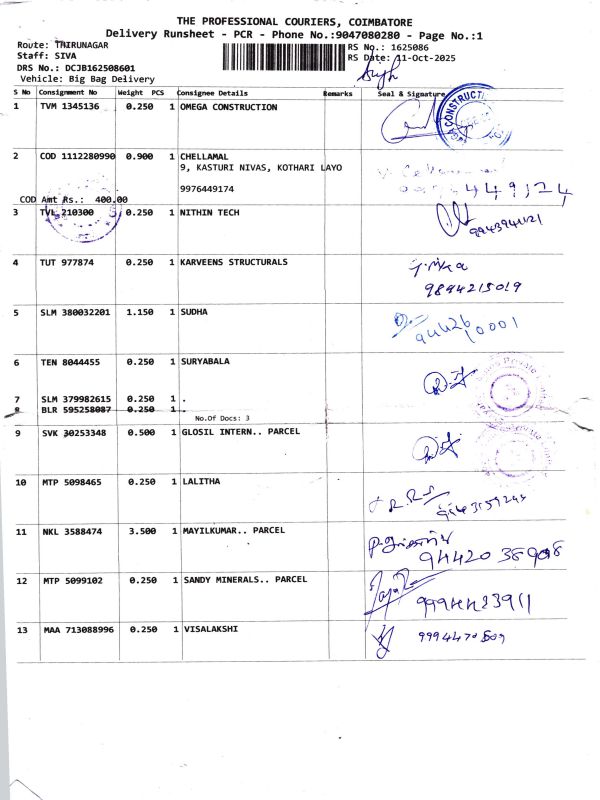 THE PROFESSIONAL COURIERS, COIMBATORE
Delivery Runsheet - PCR - Phone No.:9047080280 - Page No.:1
Route: THIRUNAGAR RS No.: 1625086
Staff: SIVA RS Date: 11-Oct-2025
DRS No.: DCJB162508601
Vehicle: Big Bag Delivery
S No Consignment No Weight PCS Consignee Details Remarks Seal & Signature
1 TVM 1345136 0.250 1 OMEGA CONSTRUCTION
2 COD 1112280990 0.900 1 CHELLAMAL
9, KASTURI NIVAS, KOTHARI LAYO
9976449174
COD Amt Rs.: 400.00
3 TVL 210300 0.250 1 NITHIN TECH
4 TUT 977874 0.250 1 KARVEENS STRUCTURALS
9894215019
5 SLM 380032201 1.150 1 SUDHA
94426
10001
6 TEN 8044455 0.250 1 SURYABALA
7 SLM 379982615 0.250 1 .
8 BLR 595258087 0.250 1 .
No.Of Docs: 3
9 SVK 30253348 0.500 1 GLOSIL INTERN.. PARCEL
10 MTP 5098465 0.250 1 LALITHA
11 NKL 3588474 3.500 1 MAYILKUMAR.. PARCEL
12 MTP 5099102 0.250 1 SANDY MINERALS.. PARCEL
13 MAA 713088996 0.250 1 VISALAKSHI